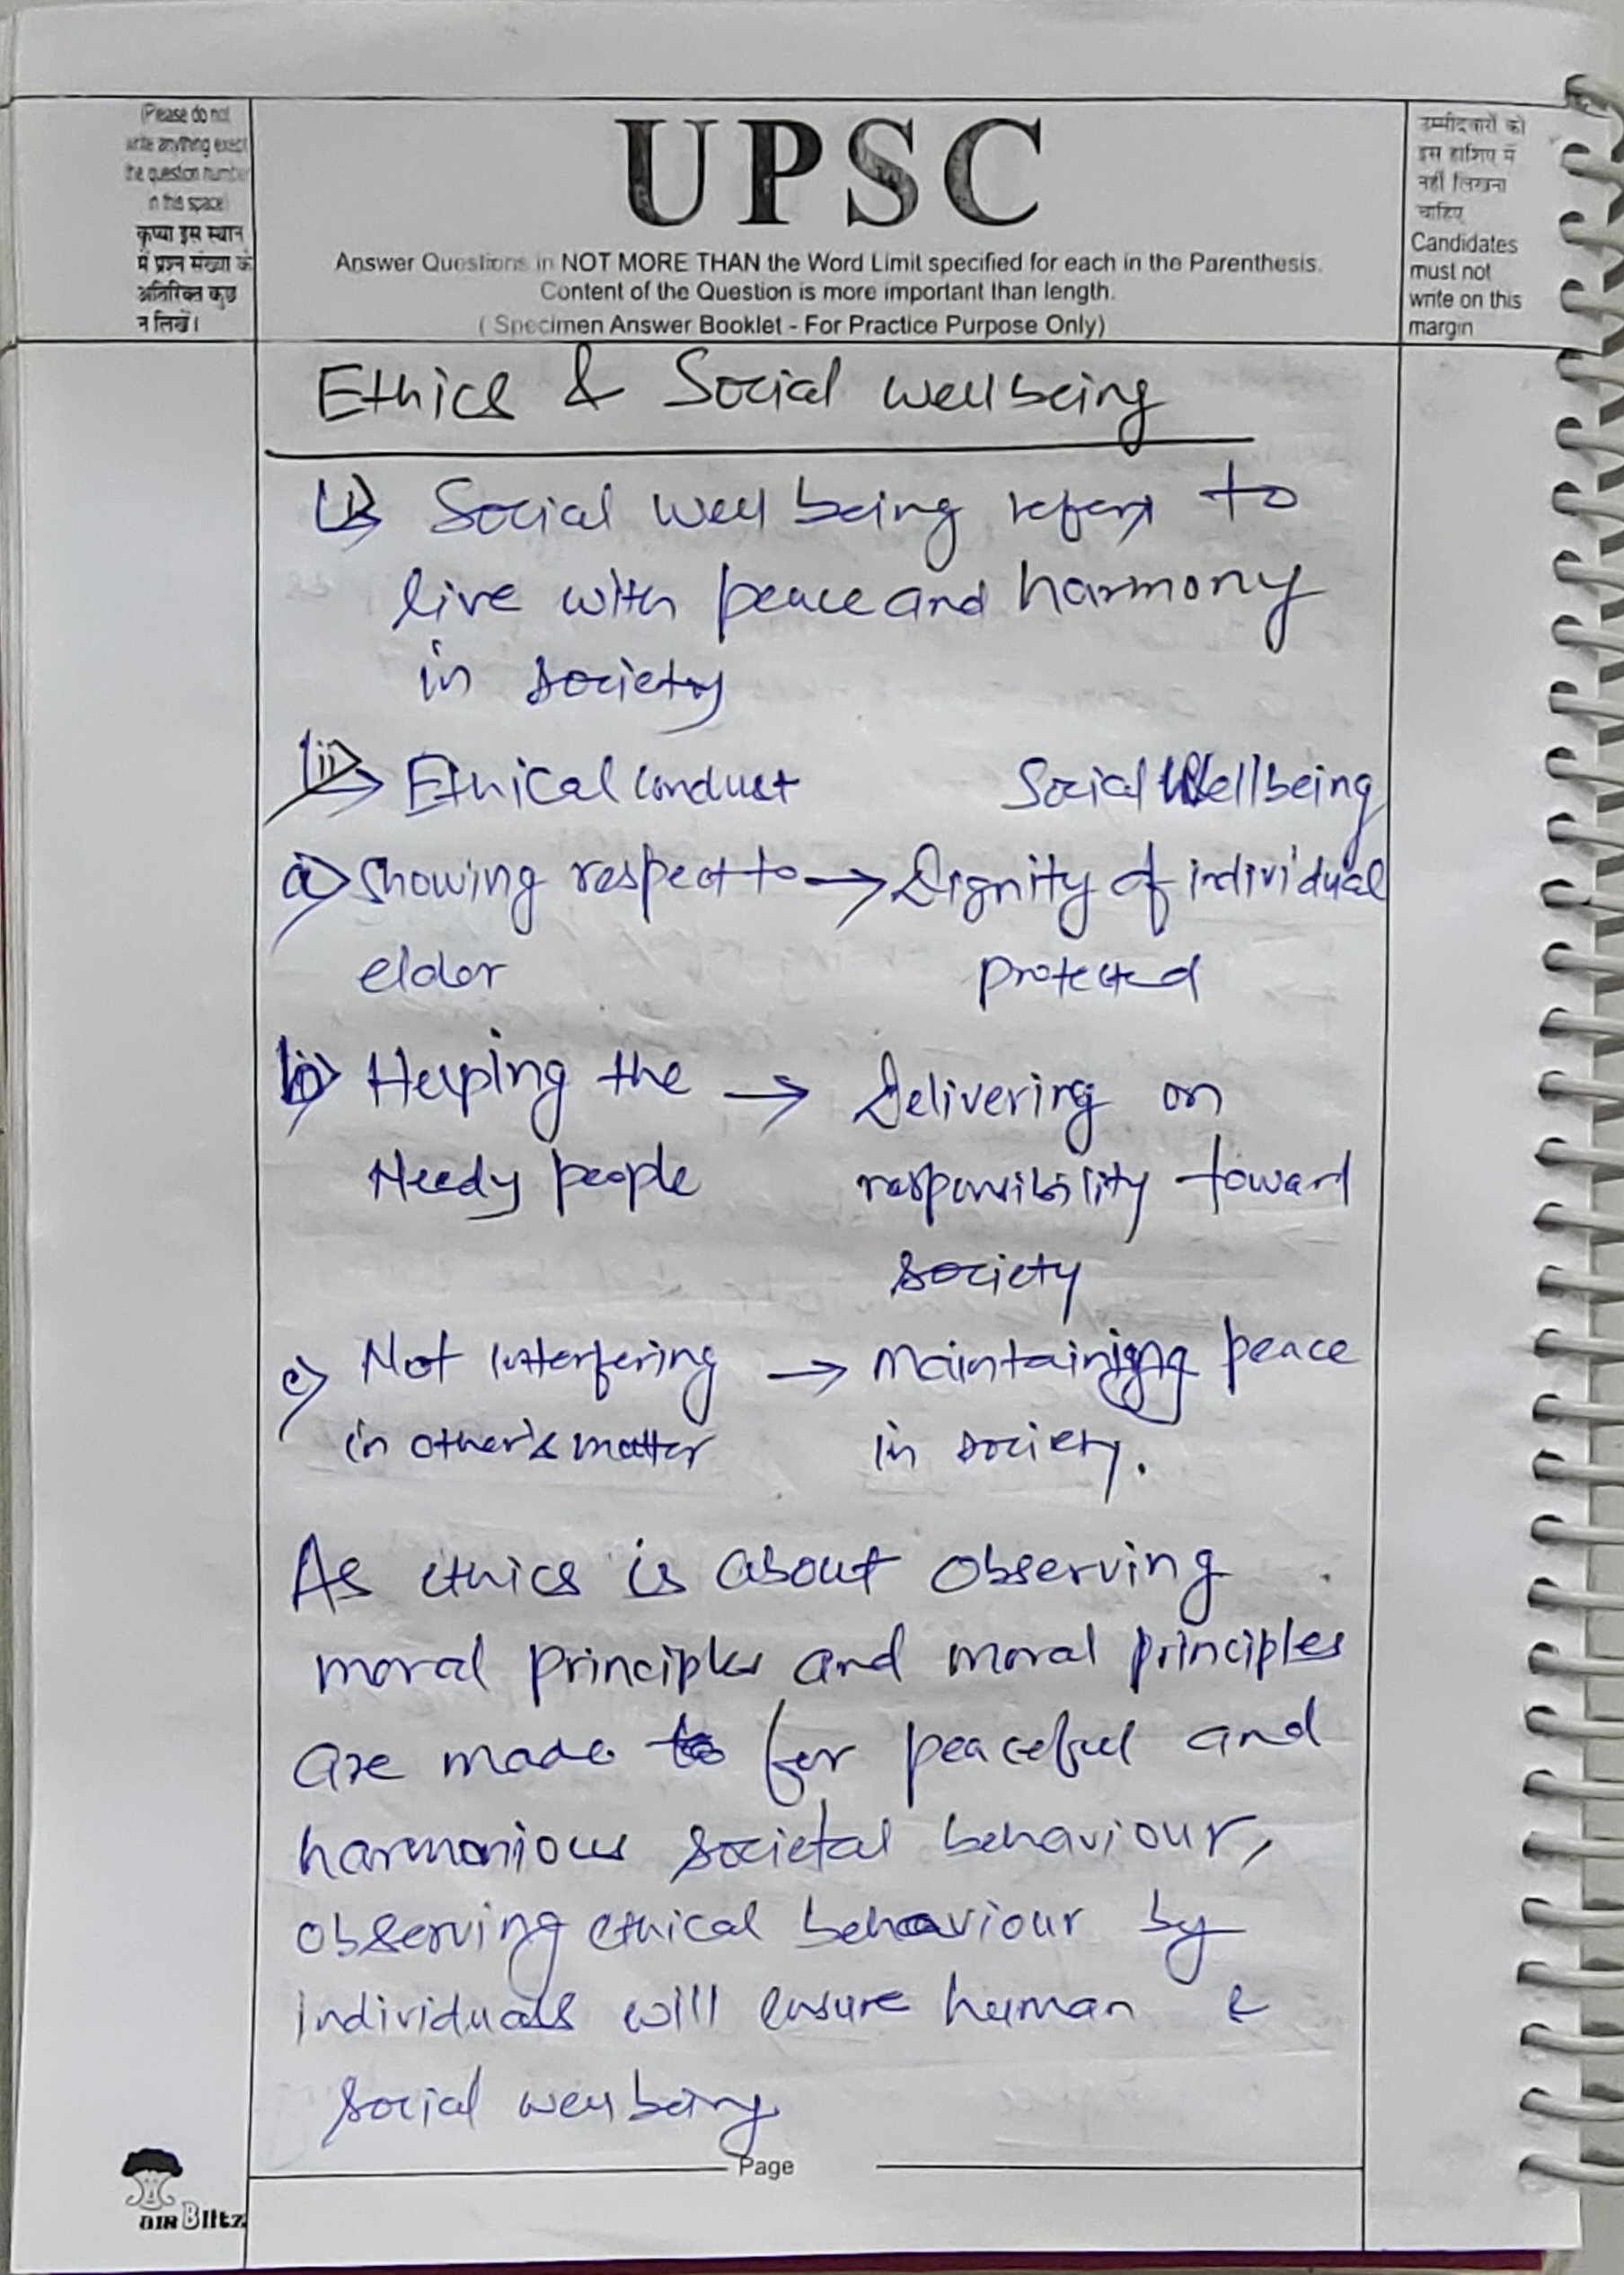 (Please do not
write anything exect
the question numbe
in this space)
कृप्या इस स्थान
में प्रश्न संख्या के
अतिरिक्त कुछ
न लिखें।
UPSC
Answer Questions in NOT MORE THAN the Word Limit specified for each in the Parenthesis.
Content of the Question is more important than length.
( Specimen Answer Booklet - For Practice Purpose Only)
उम्मीदवारों को
इस हाशिए में
नहीं लिखना
चाहिए
Candidates
must not
write on this
margin
Ethics & Social wellbeing
(i) Social well being refers to
live with peace and harmony
in society
(ii) Ethical conduct Social Wellbeing
a) Showing respect to → Dignity of individual
elder protected
b) Helping the → Delivering on
Needy people responsibility toward
society
c) Not Interfering → Maintaining peace
in other's matter in society.
As ethics is about observing
moral principles and moral principles
are made for peaceful and
harmonious societal behaviour,
observing ethical behaviour by
individuals will ensure human &
social well being
Page
AIR Blitz